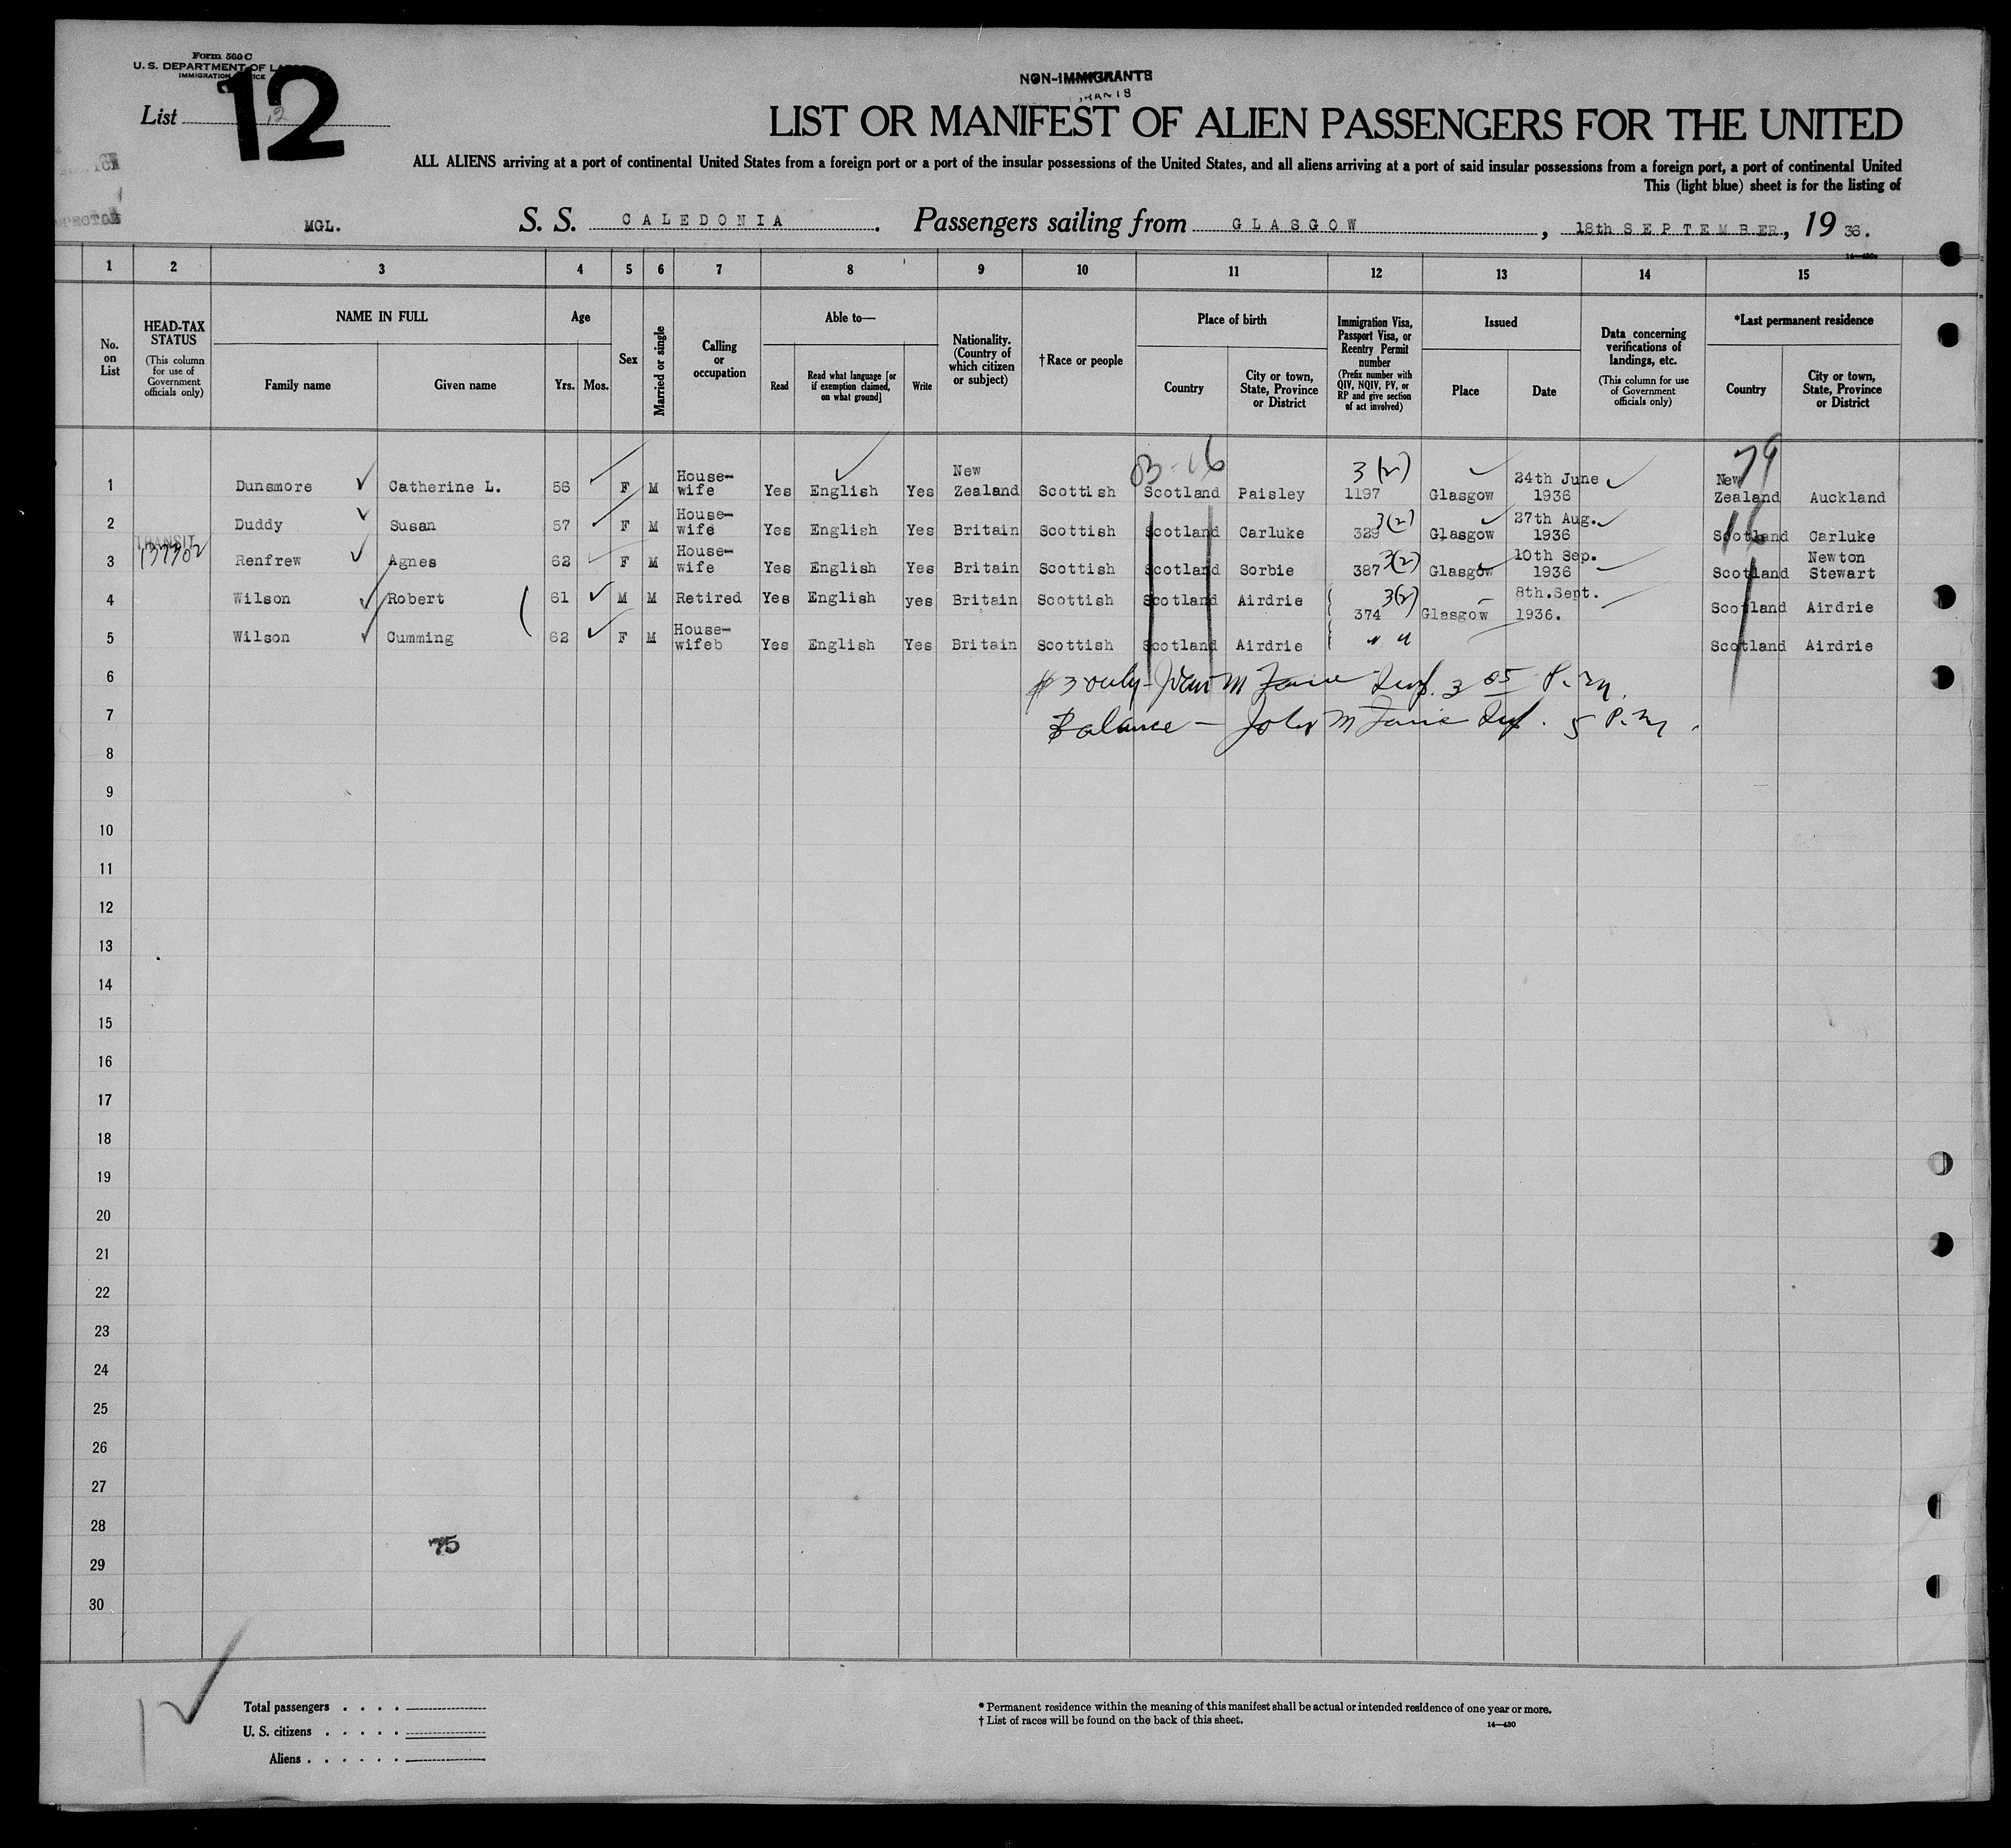 Form 500 C
U. S. DEPARTMENT OF
IMMIGRATION
NON-IMMIGRANTS
List 12
12
LIST OR MANIFEST OF ALIEN PASSENGERS FOR THE UNITED
ALL ALIENS arriving at a port of continental United States from a foreign port or a port of the insular possessions of the United States, and all aliens arriving at a port of said insular possessions from a foreign port, a port of continental United
This (light blue) sheet is for the listing of
MGL. S. S. CALEDONIA. Passengers sailing from GLASGOW, 18th SEPTEMBER, 19 36.
1 2 3 4 5 6 7 8 9 10 11 12 13 14 15
No. on List
HEAD-TAX STATUS (This column for use of Government officials only)
NAME IN FULL
Family name Given name
Age
Yrs. Mos.
Sex
Married or single
Calling or occupation
Able to—
Read Read what language [or if exemption claimed, on what ground] Write
Nationality. (Country of which citizen or subject)
†Race or people
Place of birth
Country City or town, State, Province or District
Immigration Visa, Passport Visa, or Reentry Permit number (Prefix number with QIV, NQIV, PV, or RP and give section of act involved)
Issued
Place Date
Data concerning verifications of landings, etc. (This column for use of Government officials only)
*Last permanent residence
Country City or town, State, Province or District
1 Dunsmore Catherine L. 56 F M House-wife Yes English Yes New Zealand Scottish Scotland Paisley 3(2) 1197 Glasgow 24th June 1936 New Zealand Auckland
79
2 Duddy Susan 57 F M House-wife Yes English Yes Britain Scottish Scotland Carluke 329 3(2) Glasgow 27th Aug. 1936 Scotland Carluke
16
TRANSIT
3 Renfrew Agnes 62 F M House-wife Yes English Yes Britain Scottish Scotland Sorbie 387 3(2) Glasgow 10th Sep. 1936 Scotland Newton Stewart
4 Wilson Robert 61 M M Retired Yes English yes Britain Scottish Scotland Airdrie 3(2) 374 Glasgow 8th.Sept. 1936. Scotland Airdrie
5 Wilson Cumming 62 F M House-wifeb Yes English Yes Britain Scottish Scotland Airdrie " " Scotland Airdrie
6
7 Balance — John M
8
9
10
11
12
13
14
15
16
17
18
19
20
21
22
23
24
25
26
27
28
75
29
30
Total passengers . . . .
U. S. citizens . . . . .
Aliens . . . . . .
* Permanent residence within the meaning of this manifest shall be actual or intended residence of one year or more.
† List of races will be found on the back of this sheet.
14—430